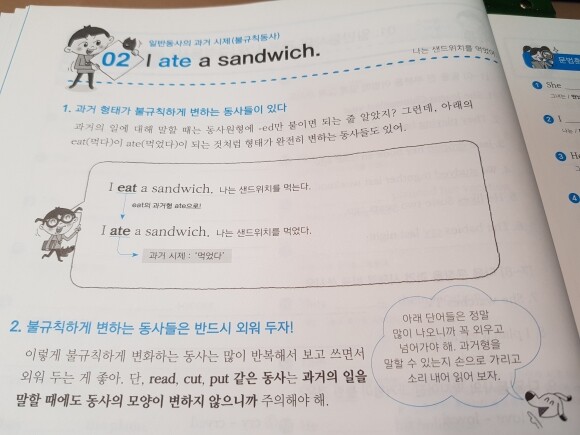 일반동사의 과거 시제(불규칙동사)
02 I ate a sandwich.
나는 샌드위치를 먹었
1. 과거 형태가 불규칙하게 변하는 동사들이 있다
과거의 일에 대해 말할 때는 동사원형에 -ed만 붙이면 되는 줄 알았지? 그런데, 아래의
eat(먹다)이 ate(먹었다)이 되는 것처럼 형태가 완전히 변하는 동사들도 있어.
I eat a sandwich. 나는 샌드위치를 먹는다.
eat의 과거형 ate으로!
I ate a sandwich. 나는 샌드위치를 먹었다.
과거 시제 : '먹었다'
2. 불규칙하게 변하는 동사들은 반드시 외워 두자!
이렇게 불규칙하게 변화하는 동사는 많이 반복해서 보고 쓰면서
외워 두는 게 좋아. 단, read, cut, put 같은 동사는 과거의 일을
말할 때에도 동사의 모양이 변하지 않으니까 주의해야 해.
아래 단어들은 정말
많이 나오니까 꼭 외우고
넘어가야 해. 과거형을
말할 수 있는지 손으로 가리고
소리 내어 읽어 보자.
1 She
2 I
나는 /
3 He
4